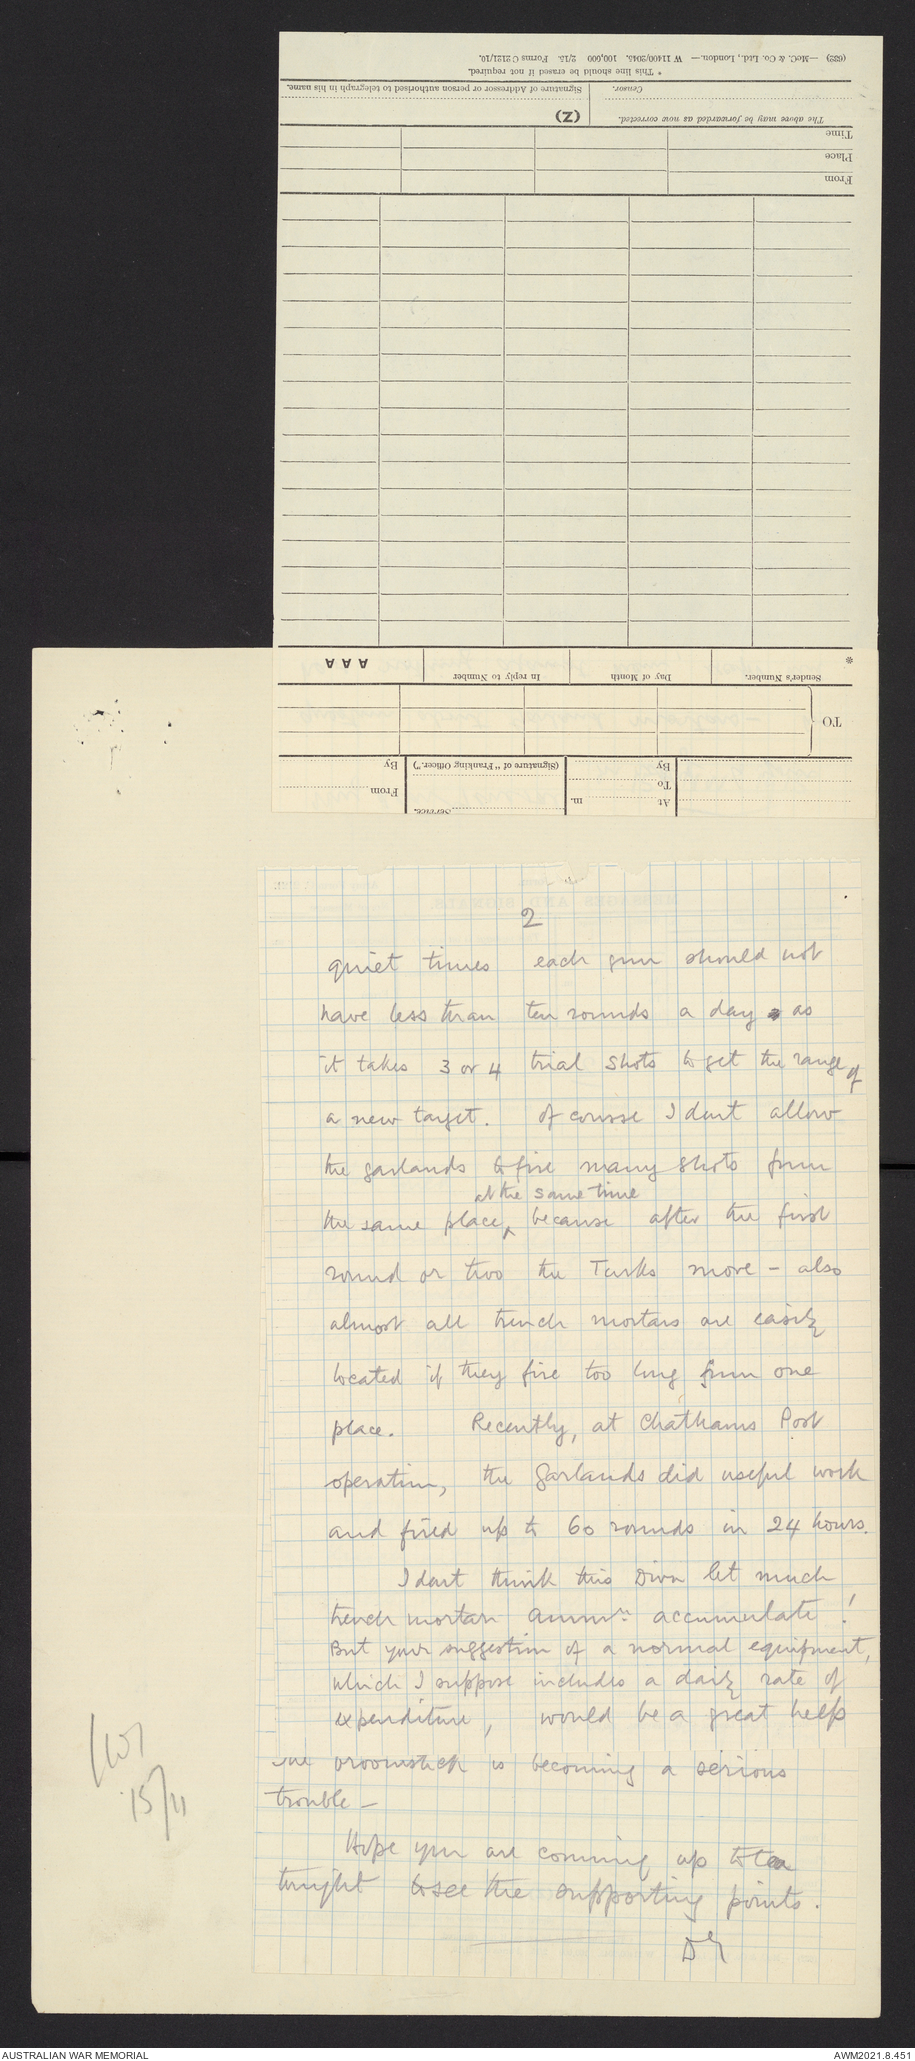 (632) —McC. & Co. Ltd., London.— W 11400/2045. 100,000 2/15. Forms C 2121/10.
* This line should be erased if not required.
Censor. Signature of Addressor or person authorised to telegraph in his name.
The above may be forwarded as now corrected. (Z)
Time
Place
From
* Sender's Number. Day of Month In reply to Number AAA
TO
By (Signature of "Franking Officer.") By
To
At m. From
Service.
2
quiet times each gun should not
have less than ten rounds a day as
it takes 3 or 4 trial shots to get the range of
a new target. Of course I don't allow
the garlands to fire many shots from
at the same time
the same place, because after the first
round or two the Turks move - also
almost all trench mortars are easily
located if they fire too long from one
place. Recently, at Chathams Post
operation, the Garlands did useful work
and fired up to 60 rounds in 24 hours.
I don't think this Divn let much
trench mortar ammn accumulate !
But your suggestion of a normal equipment,
which I suppose includes a daily rate of
expenditure, would be a great help
The broomstick is becoming a serious
trouble -
Hope you are coming up to
tonight to see the supporting points.
15/11
AUSTRALIAN WAR MEMORIAL
AWM2021.8.451